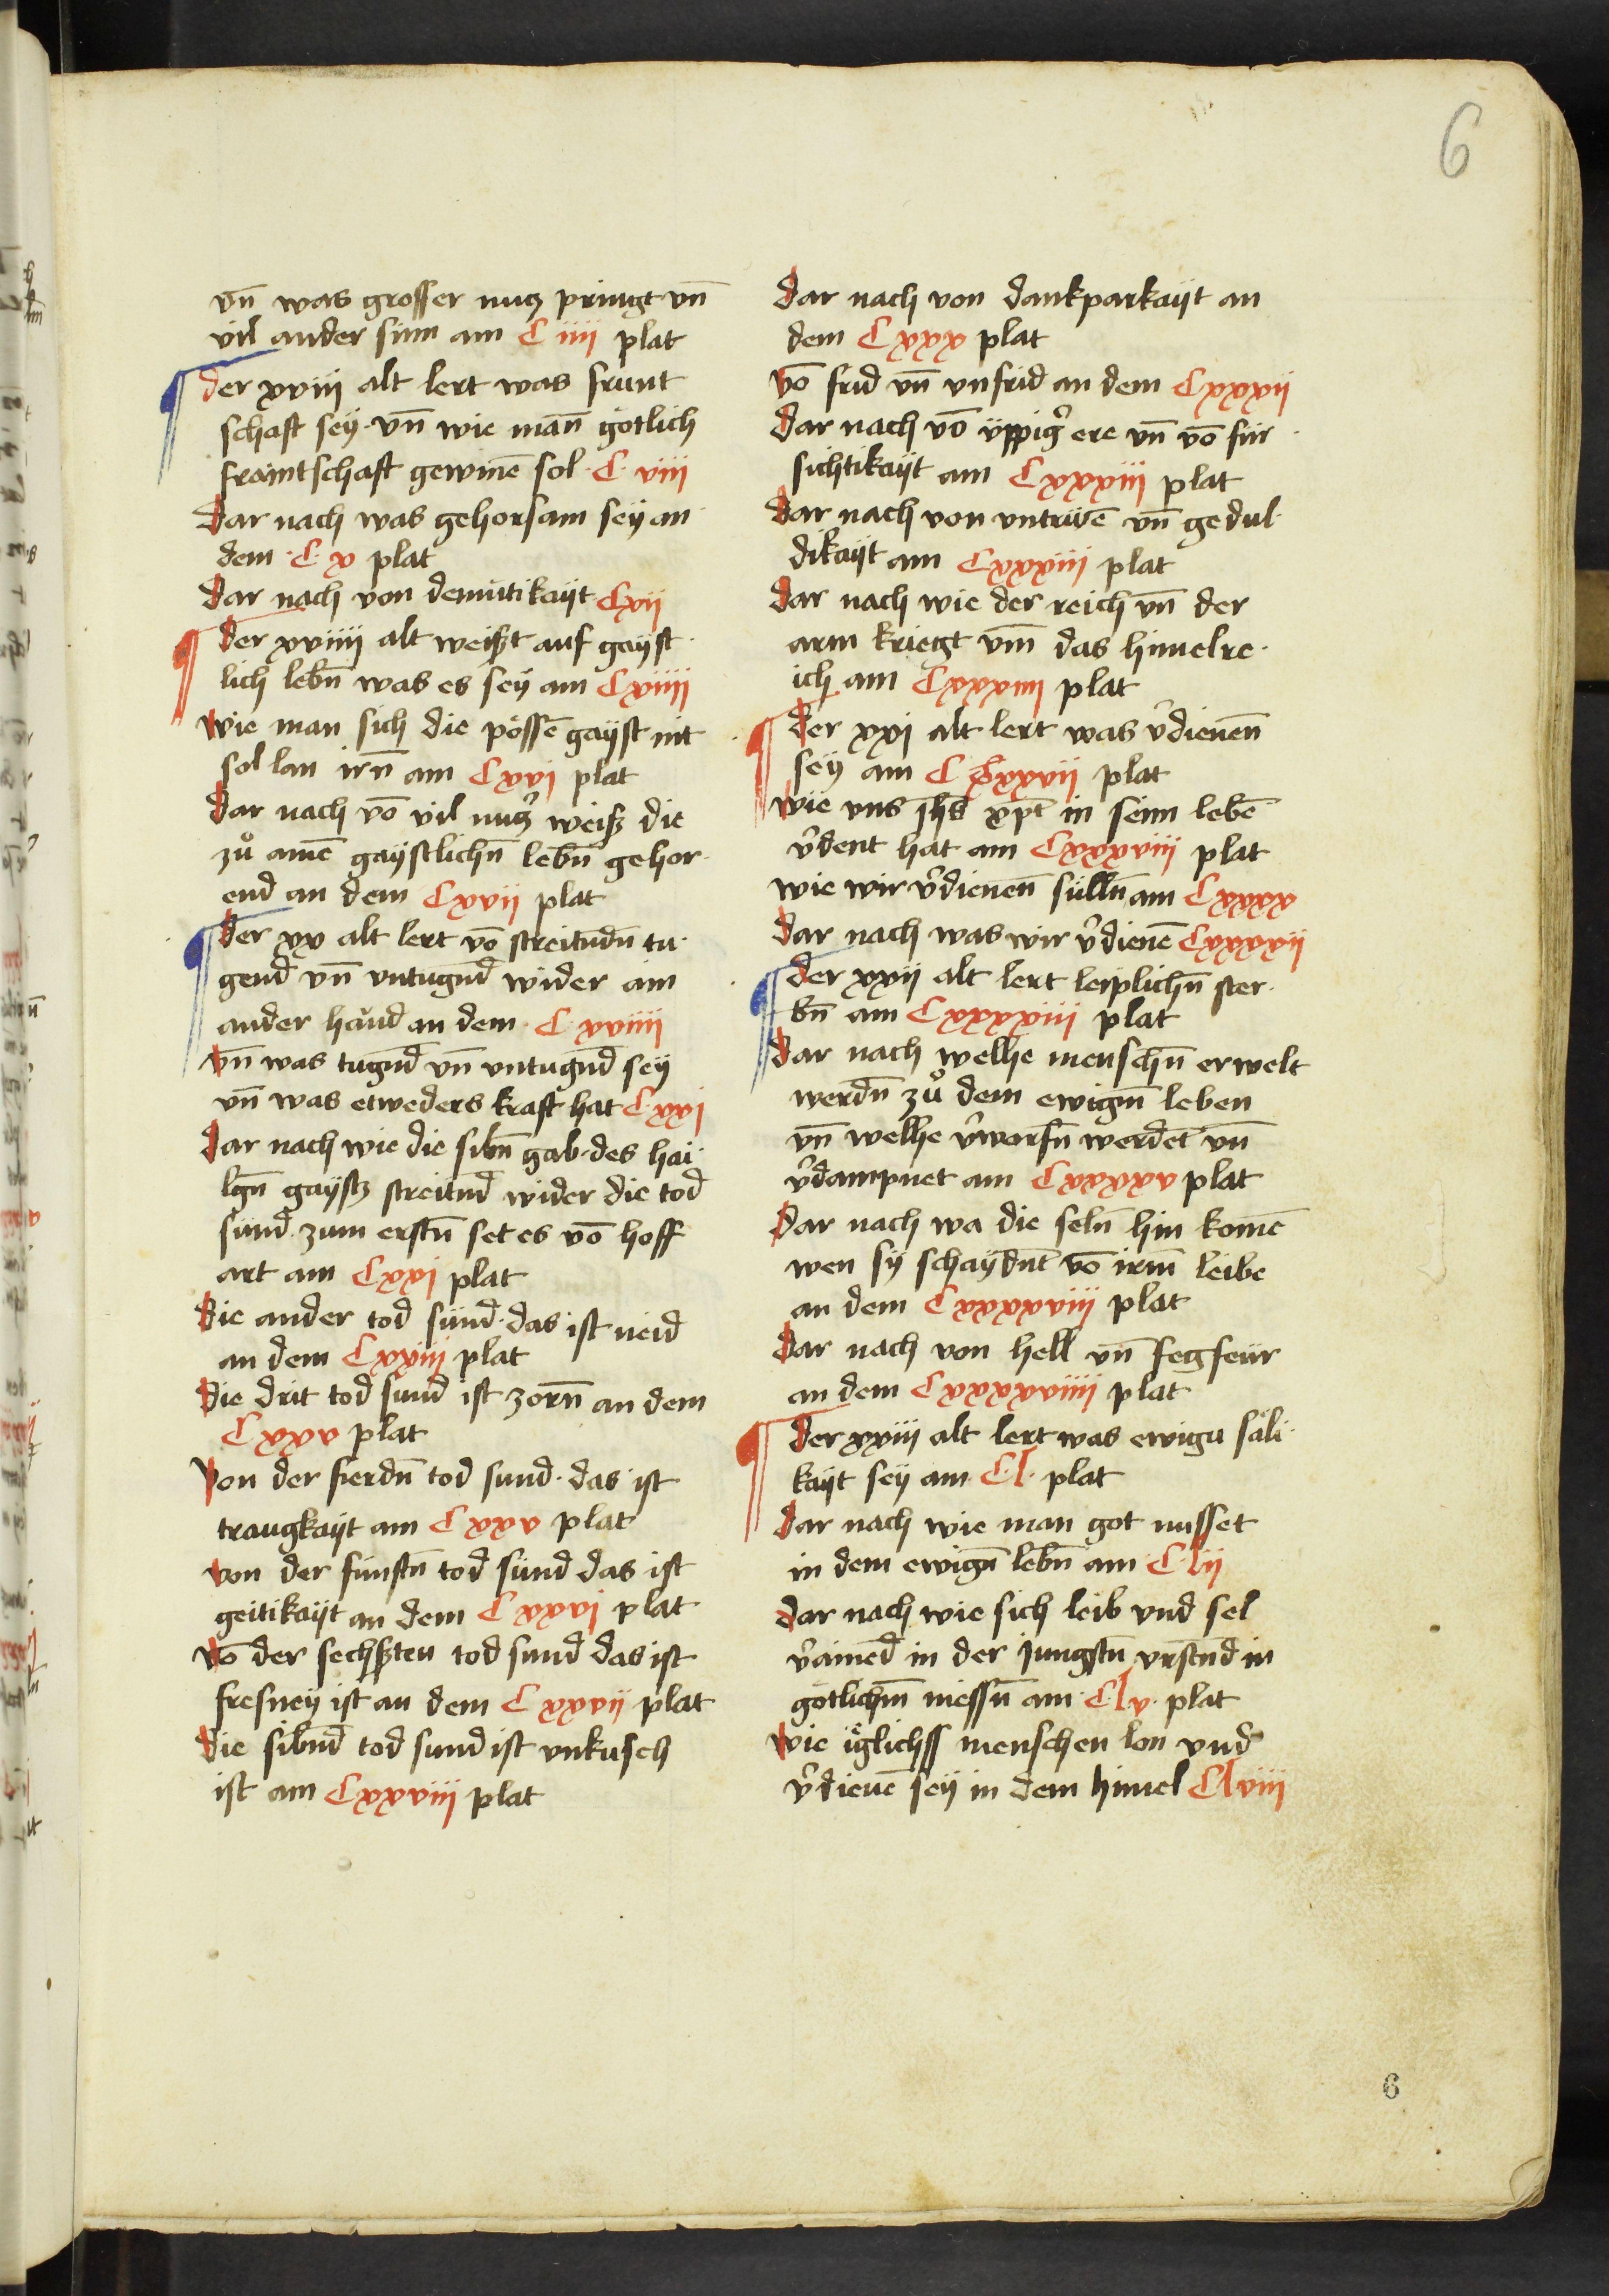 6
vn̄ was grosser nutz pringt vn̄
vil ander sinn am C iiii plat
der xviii alt lert was frunt
schaft sey · vn̄ wie man̄ götlich
fraintschaft gewinē sol · C · viii
Dar nach was gehorsam sey an
dem · C · x plat
dar nach von demutikayt Cxii
Der xviiii alt weißt auf gayst
lich lebn̄ was es sey am Cxiiii
wie man sich die possē gayst nit
sol lan irn̄ am Cxvi plat
Dar nach vō vil nutz̛ weiß die
zů ainē gaystlichn̄ lebn̄ gehor
end an dem Cxvii plat
der xx alt lert vō streitndn̄ tu
gend vn̄ vntugn̄d wider ain
ander hand an dem · C xviiii
vn̄ was tugn̄d vn̄ vntugn̄d sey
vn̄ was etweders kraft hat C·xxi
Dar nach wie die sibn̄ gab · des hai
lgn̄ gaystz streitn̄d wider die tod
sünd · zum erstn̄ set es vō hoff
art am Cxxi plat
die ander tod sünd · das ist neid
an dem Cxxiii plat
die drit tod sund ist zorn̄ an dem
Cxxv plat
von der fierdn̄ tod sund · das ist
traugkayt am Cxxv plat
von der funftn̄ tod sünd das ist
geitikayt an dem Cxxvi plat
vō der sechßten tod sund das ist
fresney ist an dem C xxvii plat
die sibn̄d tod sund ist vnkusch
ist am Cxxviii plat
Dar nach von dankparkayt an
dem Cxxx plat
vō frid vn̄ vnfrid an dem Cxxxii
Dar nach vō üppig̛ ere vn̄ vō für
sichtikayt am Cxxxiii plat
dar nach von vntrüē vn̄ gedul
dikayt am Cxxxiii plat
Dar nach wie der reich vn̄ der
arm kriegt vm̄ das himelre
ich am Cxxxiiii plat
der xxi alt lert was v̛dienen̄
sey am C Cxxvii plat
wie vns ih̄s xp̄t in seim lebē
v̛dent hat am Cxxxviii plat
wie wir v̛dienen̄ sülln̄ am Cxxxx
Dar nach was wir v̛dienē Cxxxxii
der xxii alt lert leiplichn̄ ster
bn̄ am Cxxxxiii plat
dar nach welhe menschn̄ erwelt
werdn̄ zů dem ewigm̄ leben
vn̄ welhe v̛worfn̄ werdēt vn̄
v̛dampnet am Cxxxxv plat
Dar nach wa die seln̄ hin komē
wen sy schaydnt̄ vō irm̄ leibe
an dem Cxxxxviii plat
Dar nach von hell vn̄ fegfeür
an dem Cxxxxviiii plat
Der xxiii alt lert was ewigu säli
kayt sey am · C·l · plat
dar nach wie man got nusset
in dem ewign̄ lebn̄ am · C·lii
dar nach wie sich leib vnd sel
v̛ainēd in der jungstn̄ vrstnd̄ in
götlichm̄ niessn̄ am · C·lv · plat
wie iͤglichss menschen lon vnd
v̛dienē sey in dem himel Clviii
6